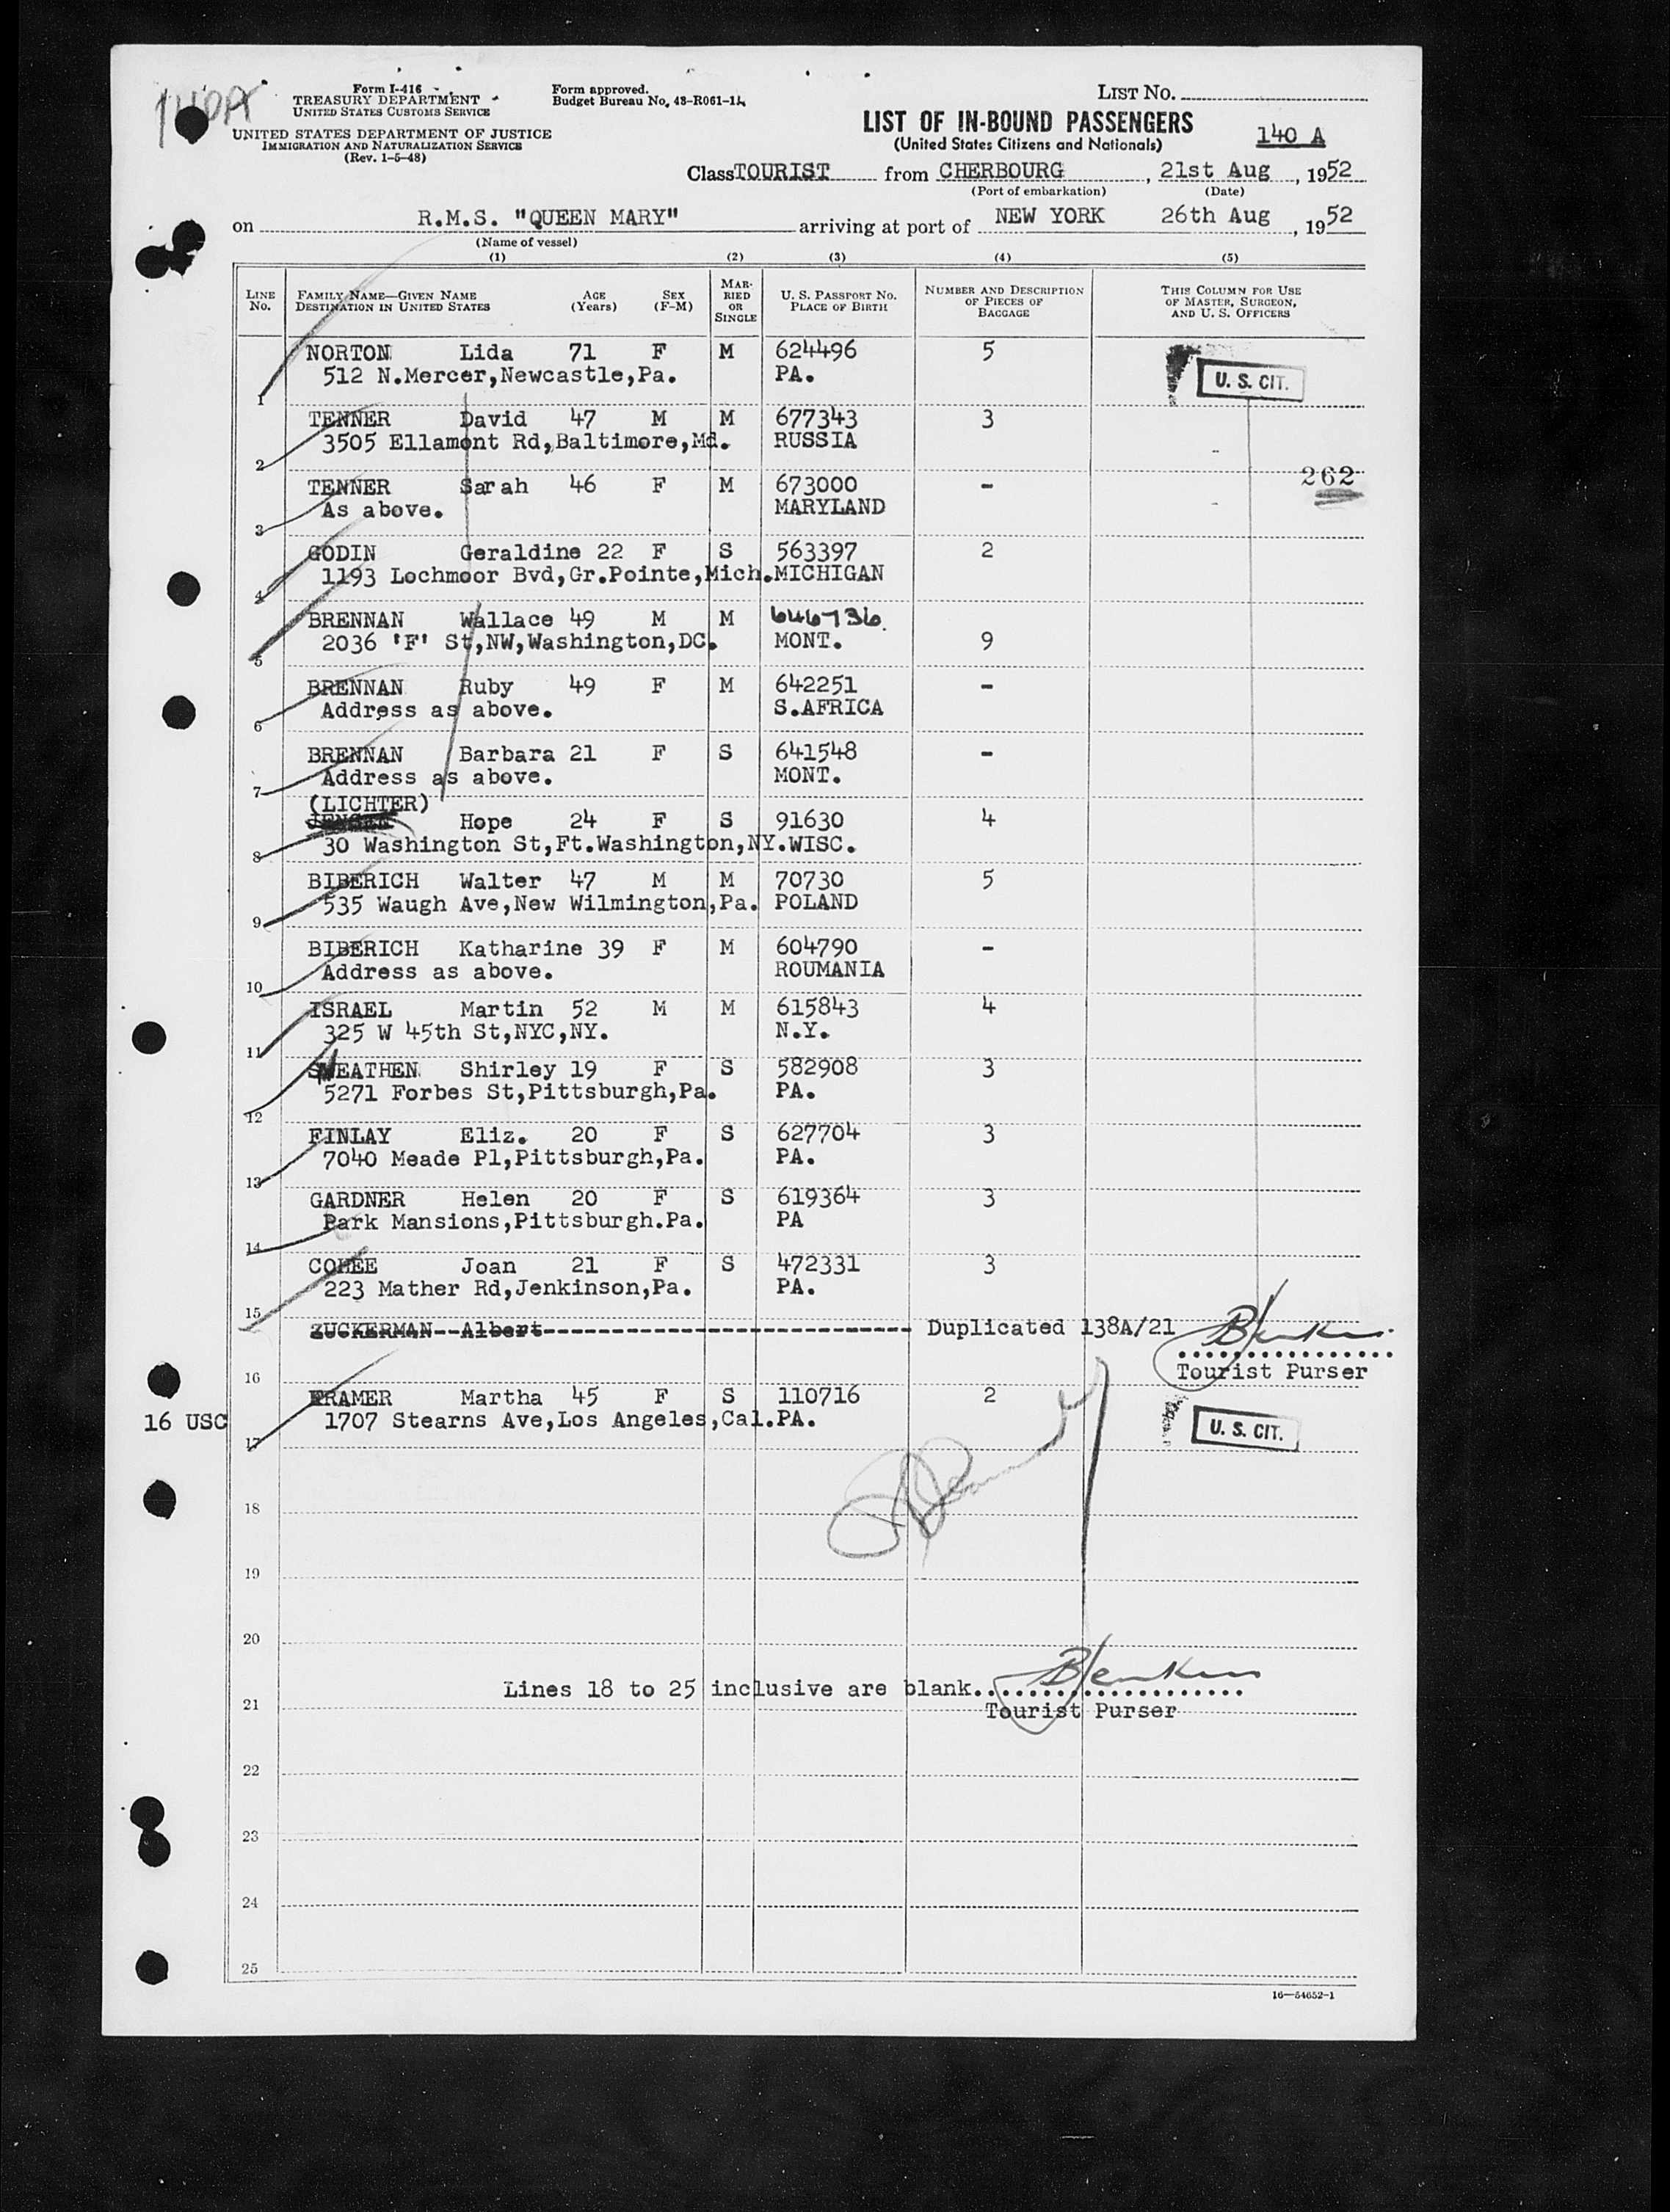 140A
Form I-416
TREASURY DEPARTMENT
UNITED STATES CUSTOMS SERVICE
UNITED STATES DEPARTMENT OF JUSTICE
IMMIGRATION AND NATURALIZATION SERVICE
(Rev. 1-5-48)
Form approved.
Budget Bureau No. 43-R061-11
LIST NO.
LIST OF IN-BOUND PASSENGERS
(United States Citizens and Nationals)
140 A
Class TOURIST from CHERBOURG, 21st Aug, 1952
(Port of embarkation) (Date)
on R.M.S. "QUEEN MARY" arriving at port of NEW YORK 26th Aug, 1952
(Name of vessel)
(1) (2) (3) (4) (5)
LINE NO. FAMILY NAME—GIVEN NAME DESTINATION IN UNITED STATES AGE (Years) SEX (F-M) MARRIED OR SINGLE U. S. PASSPORT NO. PLACE OF BIRTH NUMBER AND DESCRIPTION OF PIECES OF BAGGAGE THIS COLUMN FOR USE OF MASTER, SURGEON, AND U. S. OFFICERS
NORTON Lida 71 F M 624496 5
512 N.Mercer,Newcastle,Pa. PA. U. S. CIT.
1
TENNER David 47 M M 677343 3
3505 Ellamont Rd,Baltimore,Md. RUSSIA
2
262
TENNER Sarah 46 F M 673000 -
As above. MARYLAND
3
GODIN Geraldine 22 F S 563397 2
1193 Lochmoor Bvd,Gr.Pointe,Mich. MICHIGAN
4
BRENNAN Wallace 49 M M 646736.
2036 'F' St,NW,Washington,DC. MONT. 9
5
BRENNAN Ruby 49 F M 642251 -
Address as above. S.AFRICA
6
BRENNAN Barbara 21 F S 641548 -
Address as above. MONT.
7
(LICHTER)
Hope 24 F S 91630 4
30 Washington St,Ft.Washington,NY. WISC.
8
BIBERICH Walter 47 M M 70730 5
535 Waugh Ave,New Wilmington,Pa. POLAND
9
BIBERICH Katharine 39 F M 604790 -
Address as above. ROUMANIA
10
ISRAEL Martin 52 M M 615843 4
325 W 45th St,NYC,NY. N.Y.
11
Shirley 19 F S 582908 3
5271 Forbes St,Pittsburgh,Pa. PA.
12
FINLAY Eliz. 20 F S 627704 3
7040 Meade Pl,Pittsburgh,Pa. PA.
13
GARDNER Helen 20 F S 619364 3
Park Mansions,Pittsburgh.Pa. PA
14
COHEE Joan 21 F S 472331 3
223 Mather Rd,Jenkinson,Pa. PA.
15
ZUCKERMAN--Albert---------- Duplicated 138A/21
Tourist Purser
16
KRAMER Martha 45 F S 110716 2
16 USC 1707 Stearns Ave,Los Angeles,Cal. PA. U. S. CIT.
17
18
19
20
Lines 18 to 25 inclusive are blank.
21 Tourist Purser
22
23
24
25
16—54652-1